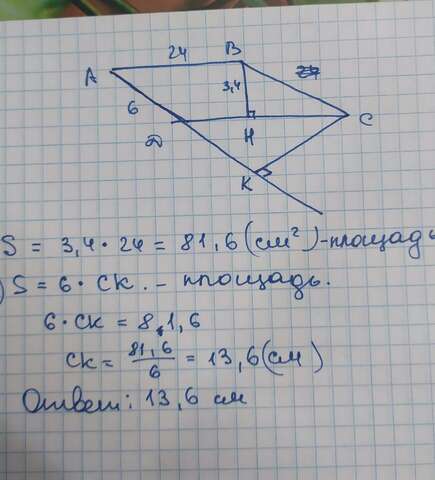 24
A
B
3,4
6
D
H
C
K
S = 3,4 · 24 = 81,6 (см²) - площадь
) S = 6 · CK. - площадь.
6 · CK = 81,6
CK = 81,6/6 = 13,6 (см)
Ответ: 13,6 см